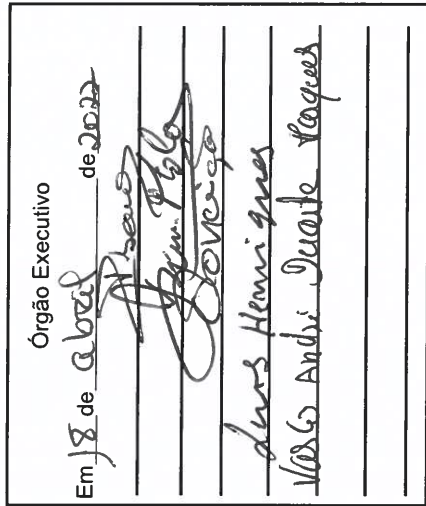 Órgão Executivo
Em 18 de abril de 2022
Conceição
Luis Henriques
Vasco André Duarte Vasques